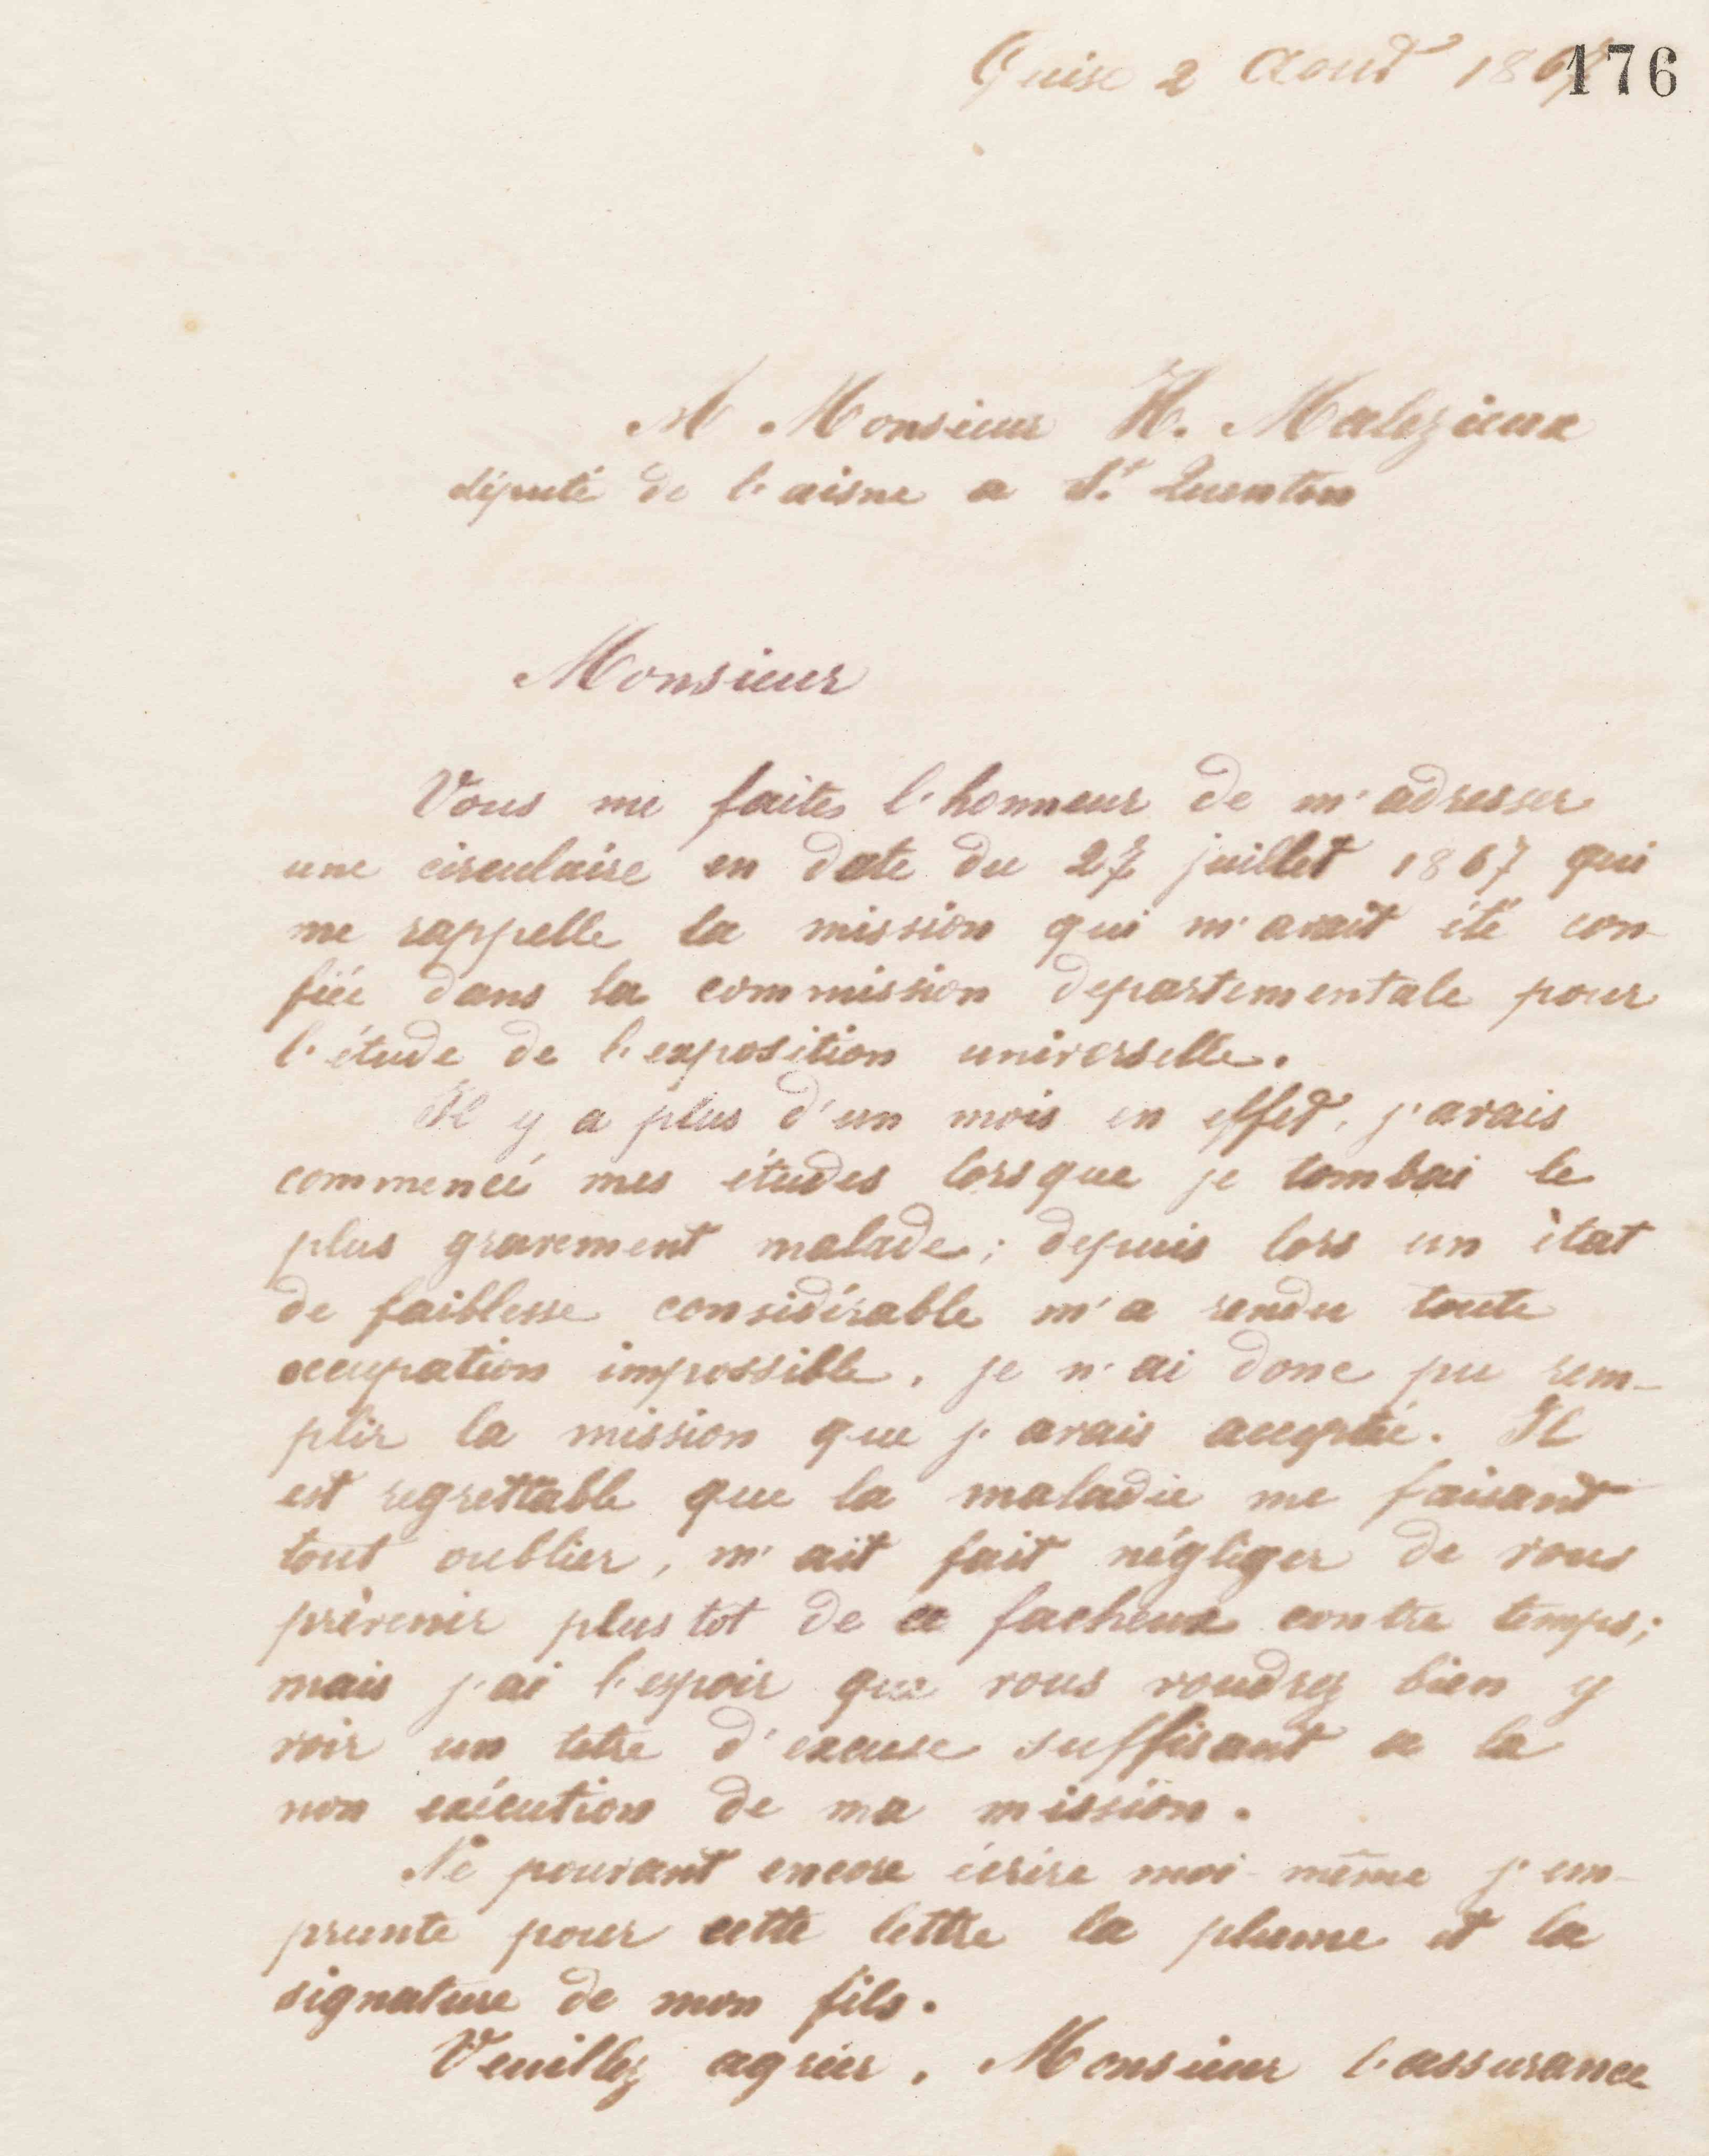 Guise 2 Aout 1867
176
A Monsieur H. Malezieux
député de l'aisne a St Quentin
Monsieur
Vous me faites l'honneur de m'adresser
une circulaire en date du 27 juillet 1867 qui
me rappelle la mission qui m'avait été con-
fiée dans la commission departementale pour
l'étude de l'exposition universelle.
Il y a plus d'un mois en effet, j'avais
commencé mes études lorsque je tombai le
plus gravement malade; depuis lors un état
de faiblesse considérable m'a rendu toute
occupation impossible. je n'ai donc pu rem-
plir la mission que j'avais acceptée. Il
est regrettable que la maladie me faisant
tout oublier, m'ait fait négliger de vous
prévenir plus tot de ce facheux contre temps;
mais j'ai l'espoir que vous voudrez bien y
voir un titre d'excuse suffisant a la
non exécution de ma mission.
Ne pouvant encore écrire moi-même j'em-
prunte pour cette lettre la plume et la
signature de mon fils.
Veuillez agréer, Monsieur l'assurance